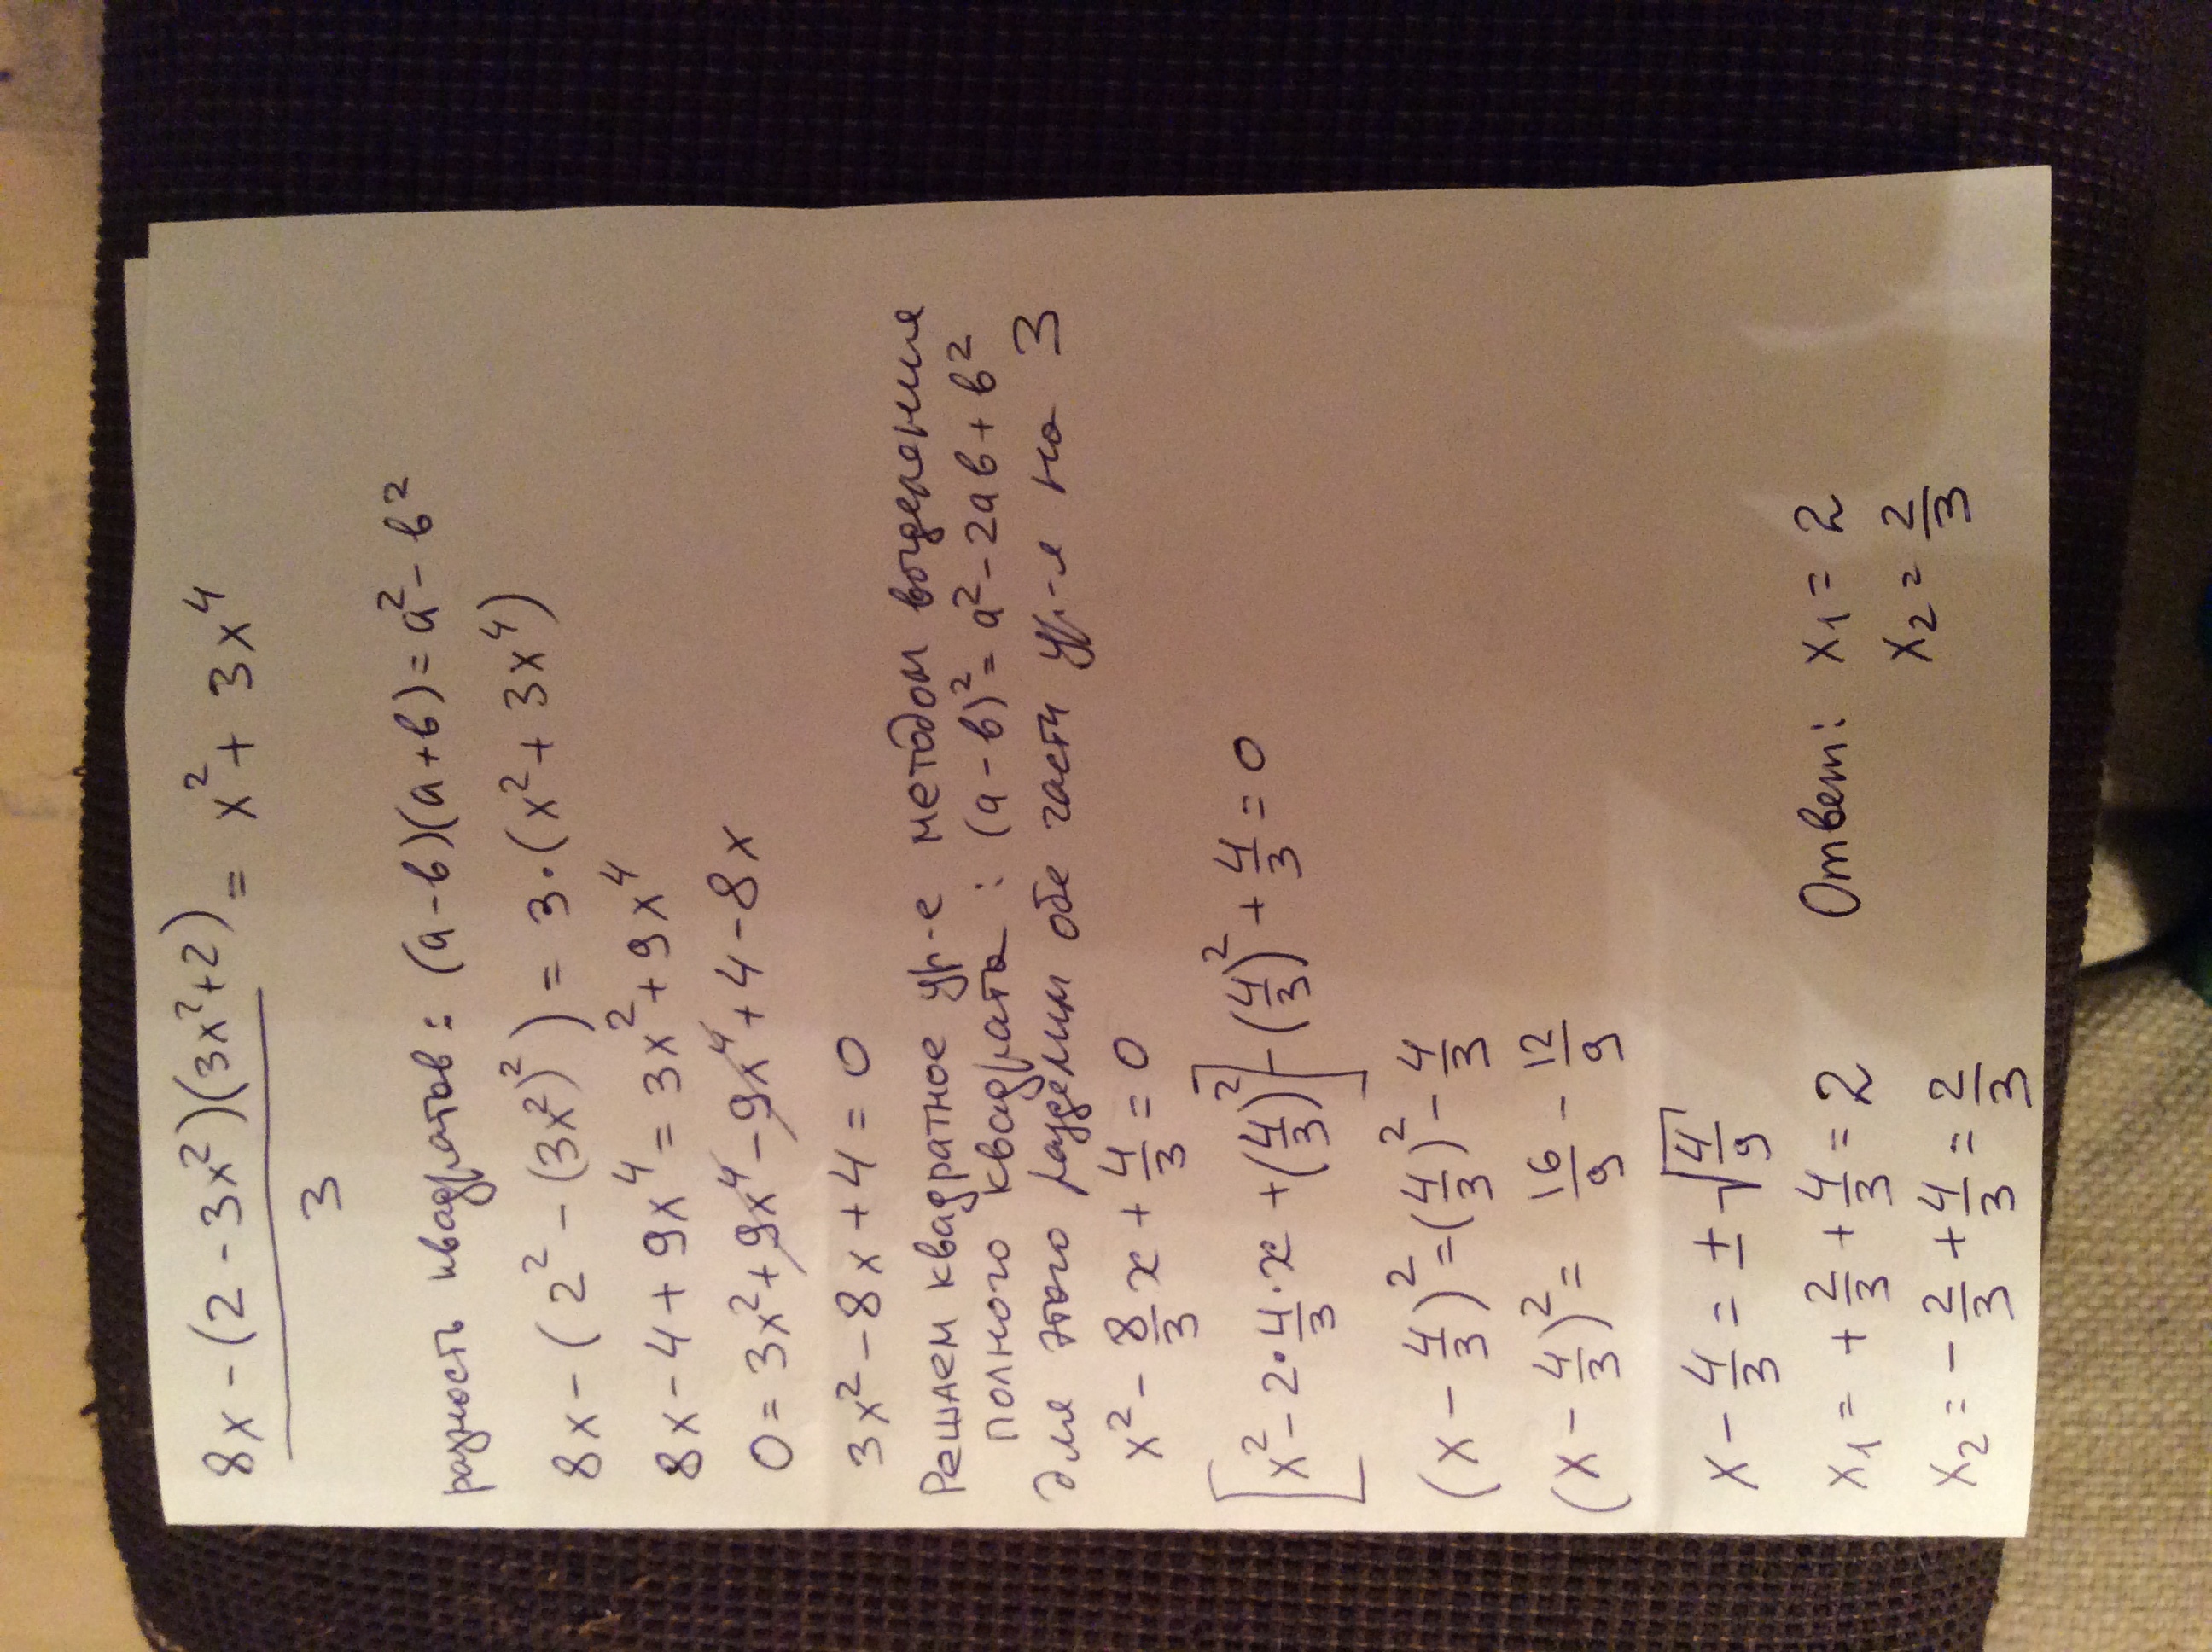 8x - (2 - 3x²)(3x²+2) = x² + 3x⁴
3
разность квадратов : (a-в)(a+в) = a² - в²
8x - (2² - (3x²)²) = 3·(x² + 3x⁴)
8x - 4 + 9x⁴ = 3x² + 9x⁴
0 = 3x² + 9x⁴ - 9x⁴ + 4 - 8x
3x² - 8x + 4 = 0
Решаем квадратное ур-е методом выделения
полного квадрата : (a - в)² = a² - 2ав + в²
для этого разделим обе части ур-я на 3
x² - 8/3 x + 4/3 = 0
[x² - 2·4/3·x + (4/3)²] - (4/3)² + 4/3 = 0
(x - 4/3)² = (4/3)² - 4/3
(x - 4/3)² = 16/9 - 12/9
x - 4/3 = ± √4/9
x₁ = + 2/3 + 4/3 = 2 Ответ: x₁ = 2
x₂ = - 2/3 + 4/3 = 2/3 x₂ = 2/3